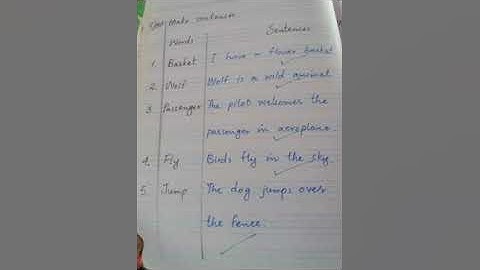 Make sentences
Words Sentences
1. Basket I have a flower basket
2. Wolf Wolf is a wild animal
3. Passenger The pilot welcomes the
passenger in aeroplane.
4. Fly Birds fly in the sky.
5. Jump The dog jumps over
the fence.